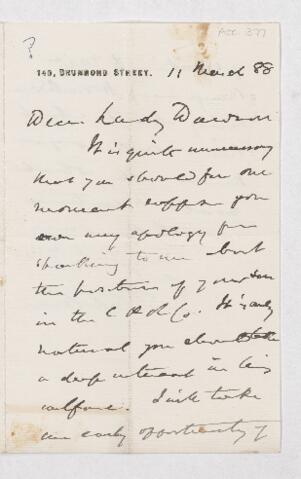 ?
Acc. 377
149, DRUMMOND STREET. 11 March 88
Dear Lady Dawson
It is quite unnecessary
that you should for one
moment suppose you
owe any apology for
speaking to me about
the position of your son
in the C P R Co. It is only
natural you should take
a deep interest in his
welfare. I will take
an early opportunity of